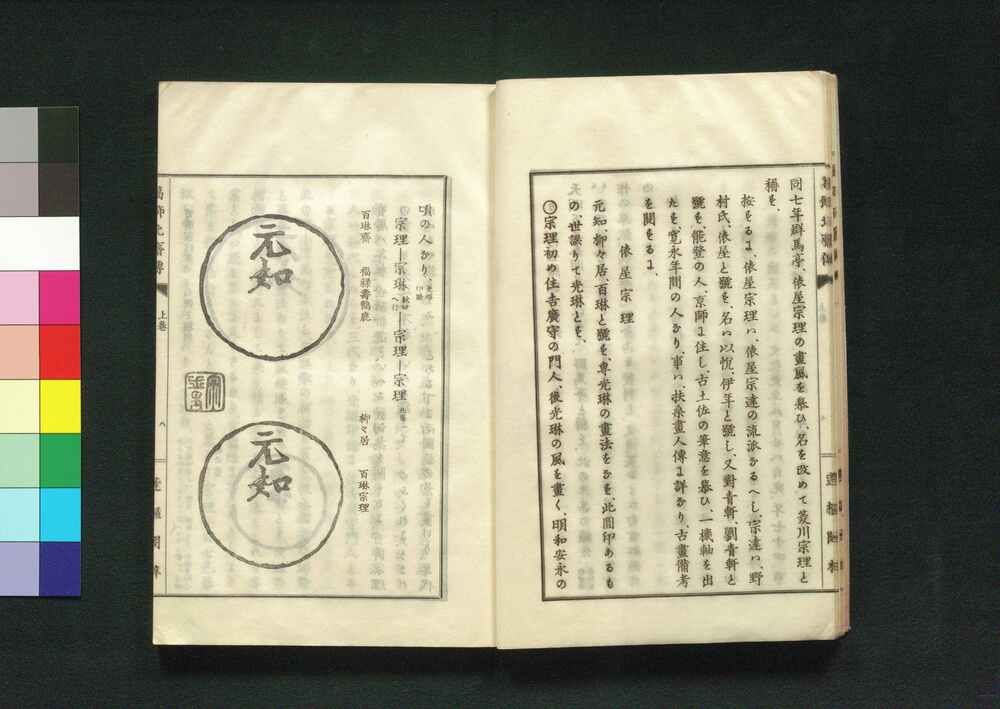 同七年群馬亭、俵屋宗理の畫風を慕ひ、名を改めて菱川宗理と
稱を、
按をるよ、俵屋宗理ハ、俵屋宗達の流派なるへし、宗達ハ、野
村氏、俵屋と號を、名ハ以悦、伊年と號し、又對青軒、劉青軒と
號を、能登の人、京師よ住し、古土佐の筆意を慕ひ、一機軸を出
たを、寛永年間の人なり、事ハ、扶桑畫人傳よ詳なり、古畫備考
を閲をるよ、
俵屋宗理
元知、柳々居、百琳と號を、専光琳の畫法をなを、此圓印あるも
の、世誤りて光琳とを、
宗理初め住吉廣守の門人、後光琳の風を畫く、明和安永の
頃の人なり、
宗理―宗琳―宗理―宗理
百琳齋 福禄壽鶴鹿
柳々居 百琳宗理
元知
元知
上巻